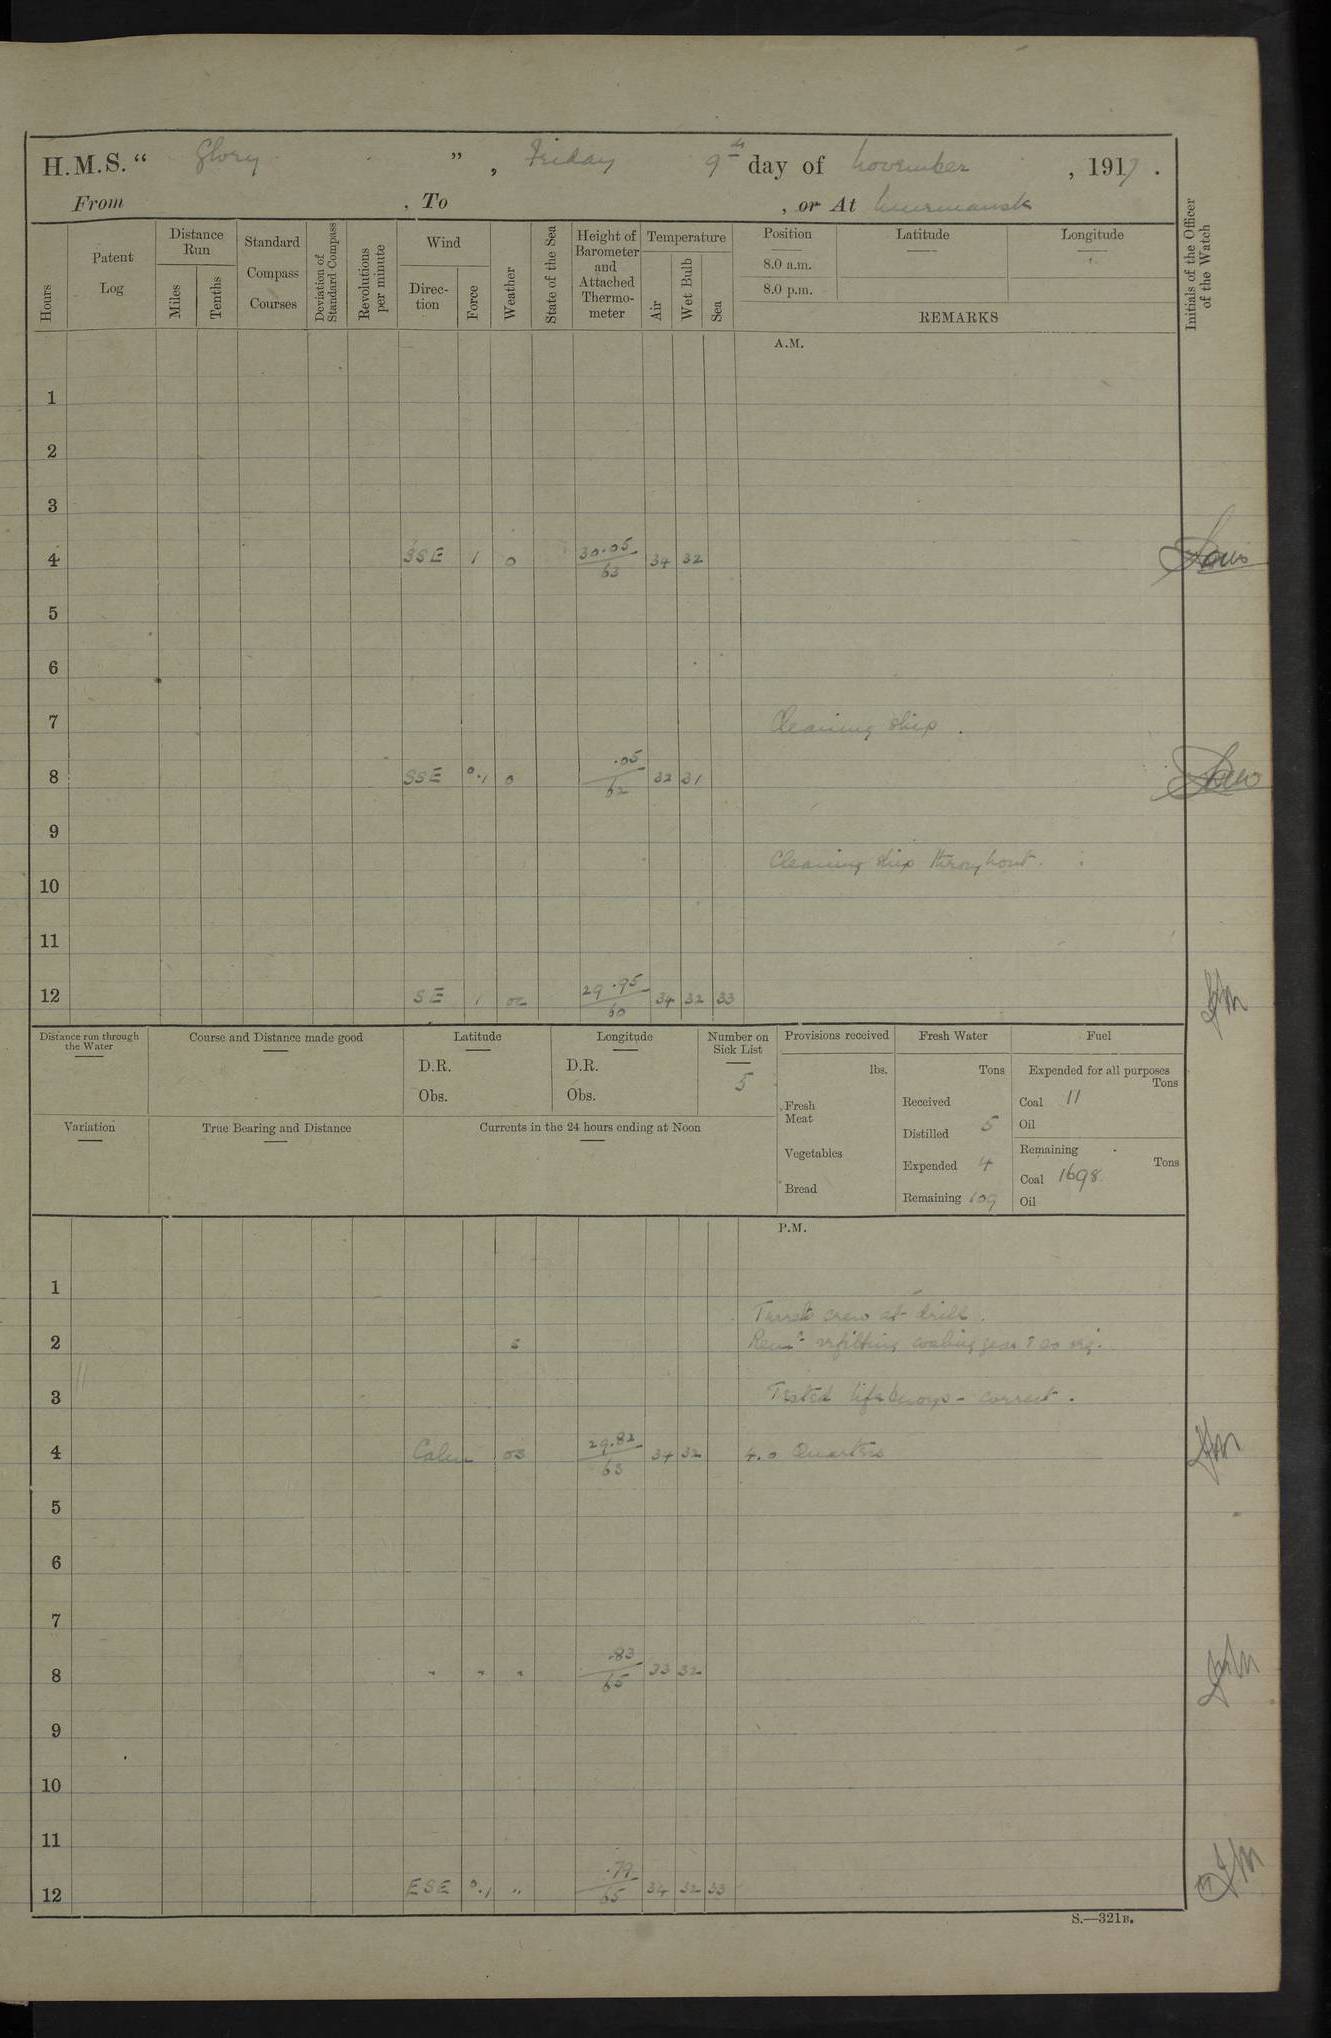 H.M.S. “ Glory ” , Friday 9th day of November , 1917 .
From , To , or At Murmansk
Hours
Patent Log
Distance Run
Miles
Tenths
Standard Compass Courses
Deviation of Standard Compass
Revolutions per minute
Wind
Direc-tion
Force
Weather
State of the Sea
Height of Barometer and Attached Thermo-meter
Temperature
Air
Wet Bulb
Sea
Position
8.0 a.m.
8.0 p.m.
Latitude
Longitude
REMARKS
Initials of the Officer of the Watch
A.M.
1
2
3
4 SSE 1 o 30.05/63 34 32
5
6
7 Cleaning ship.
8 SSE 0.1 o .05/62 32 31
9
Cleaning ship throughout.
10
11
12 SE 1 oc 29.95/60 34 32 33
Distance run through the Water
Course and Distance made good
Latitude
D.R.
Obs.
Longitude
D.R.
Obs.
Number on Sick List
5
Provisions received
lbs.
Fresh Meat
Vegetables
Bread
Fresh Water
Tons
Received
Distilled 5
Expended 4
Remaining 109
Fuel
Expended for all purposes
Tons
Coal 11
Oil
Remaining
Tons
Coal 1698
Oil
Variation
True Bearing and Distance
Currents in the 24 hours ending at Noon
P.M.
1
Turrets crew at drill.
2 s refitting coaling gear
3 Tested lifebuoys - correct.
4 Calm os 29.82/63 34 32 4.0 Quarters
5
6
7
8 " " " .83/65 33 32
9
10
11
12 ESE 0.1 " .79/65 34 32 33
S.—321B.